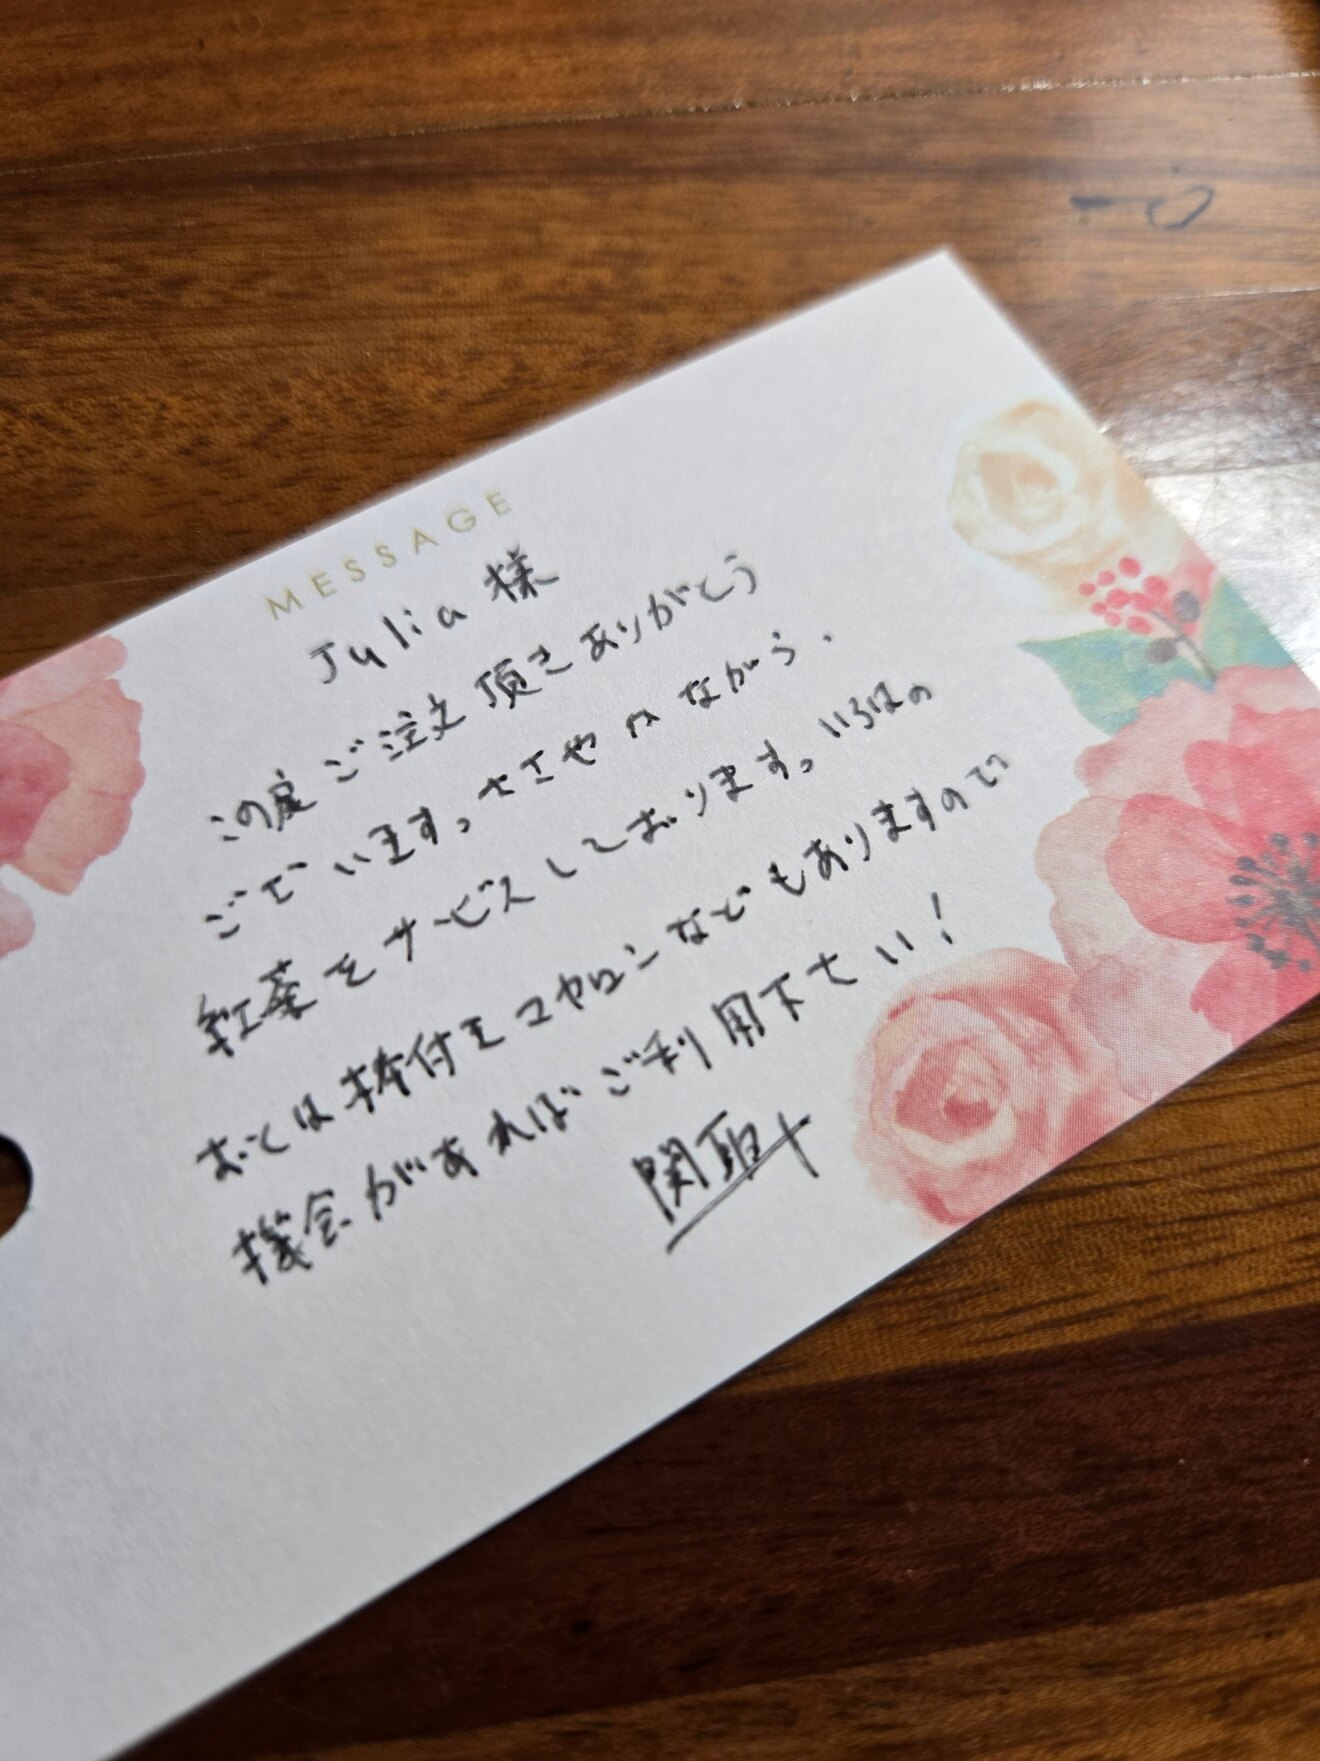 MESSAGE
Julia 様
この度ご注文頂きありがとう
ございます。ささやかながら、
紅茶をサービスしております。いろはの
おとは 付 マカロンなどもありますので
機会があればご利用下さい!
関